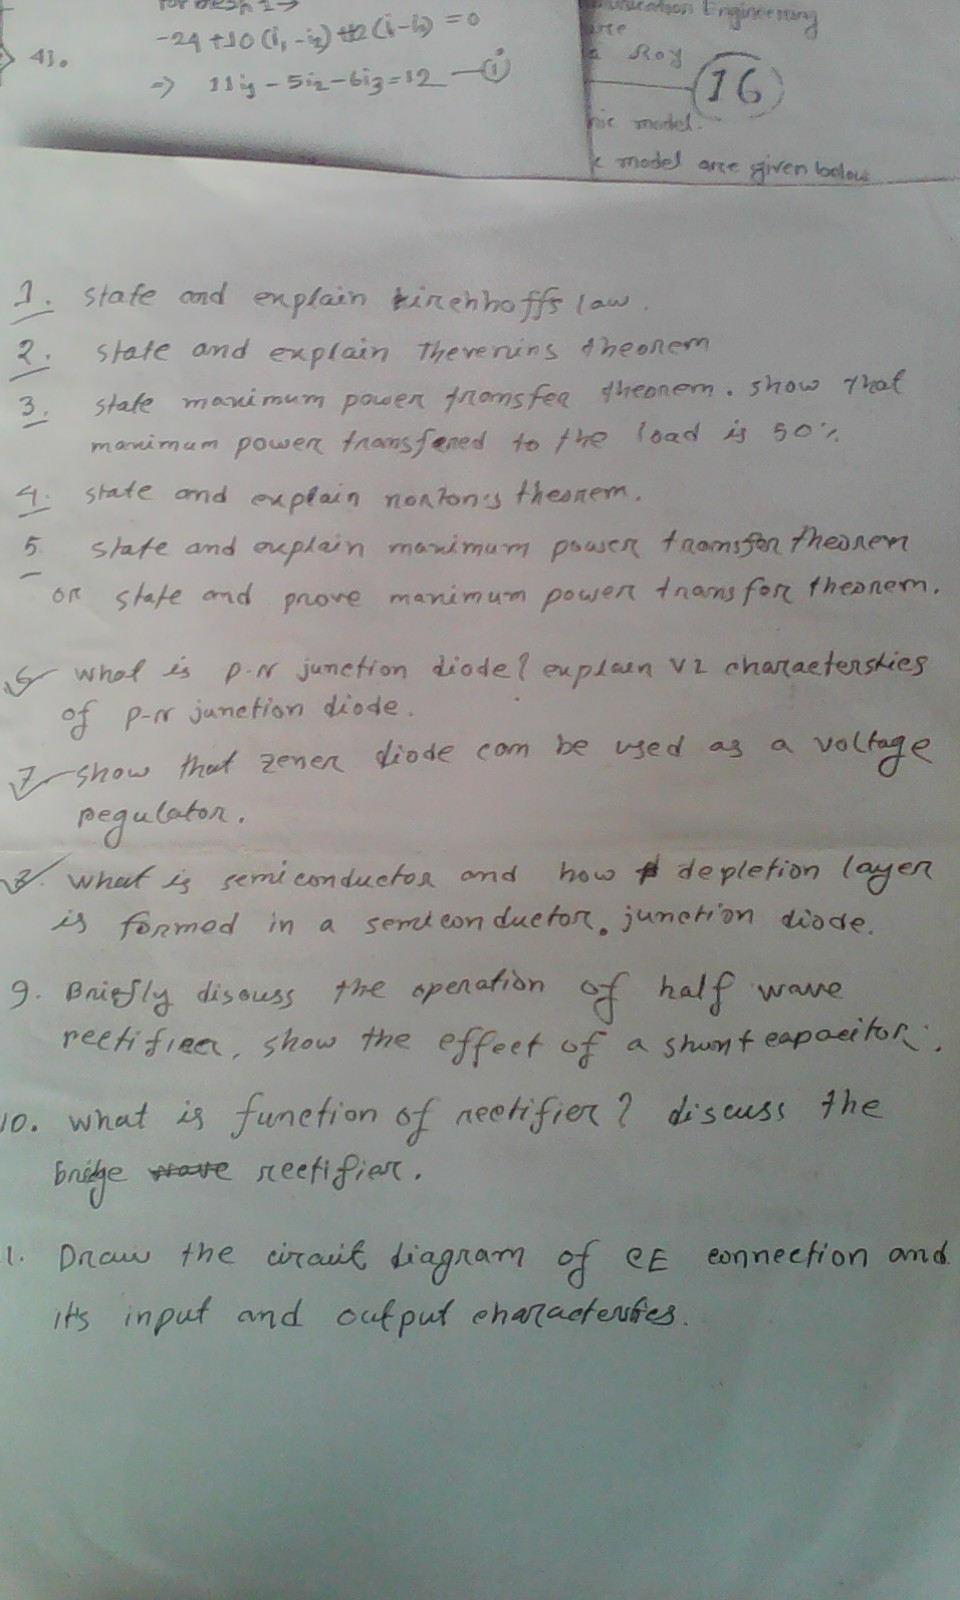 41.
-24 +10 (i₁-i₂) +12 (i-i₃) =0
=> 11i₁ - 5i₂ - 6i₃=12 —(i)
Engineering
Roy
16
model.
model are given below
1. state and explain kirchhoffs law.
2. state and explain Thevenins theorem
3. state maximum power transfer theorem. show that
maximum power transfered to the load is 50%
4. state and explain norton's theorem.
5. state and explain maximum power transfer theorem
or state and prove maximum power transfor theorem.
6 what is p-N junction diode? explain VI characterstics
of p-N junction diode.
7 show that zener diode can be used as a voltage
regulator.
8. what is semiconductor and how depletion layer
is formed in a semiconductor. junction diode.
9. Briefly disouss the operation of half wave
rectifier, show the effect of a shunt capacitor.
10. what is function of rectifier? discuss the
bridge wave rectifier.
1. Draw the circuit diagram of CE connection and
it's input and output characterstics.